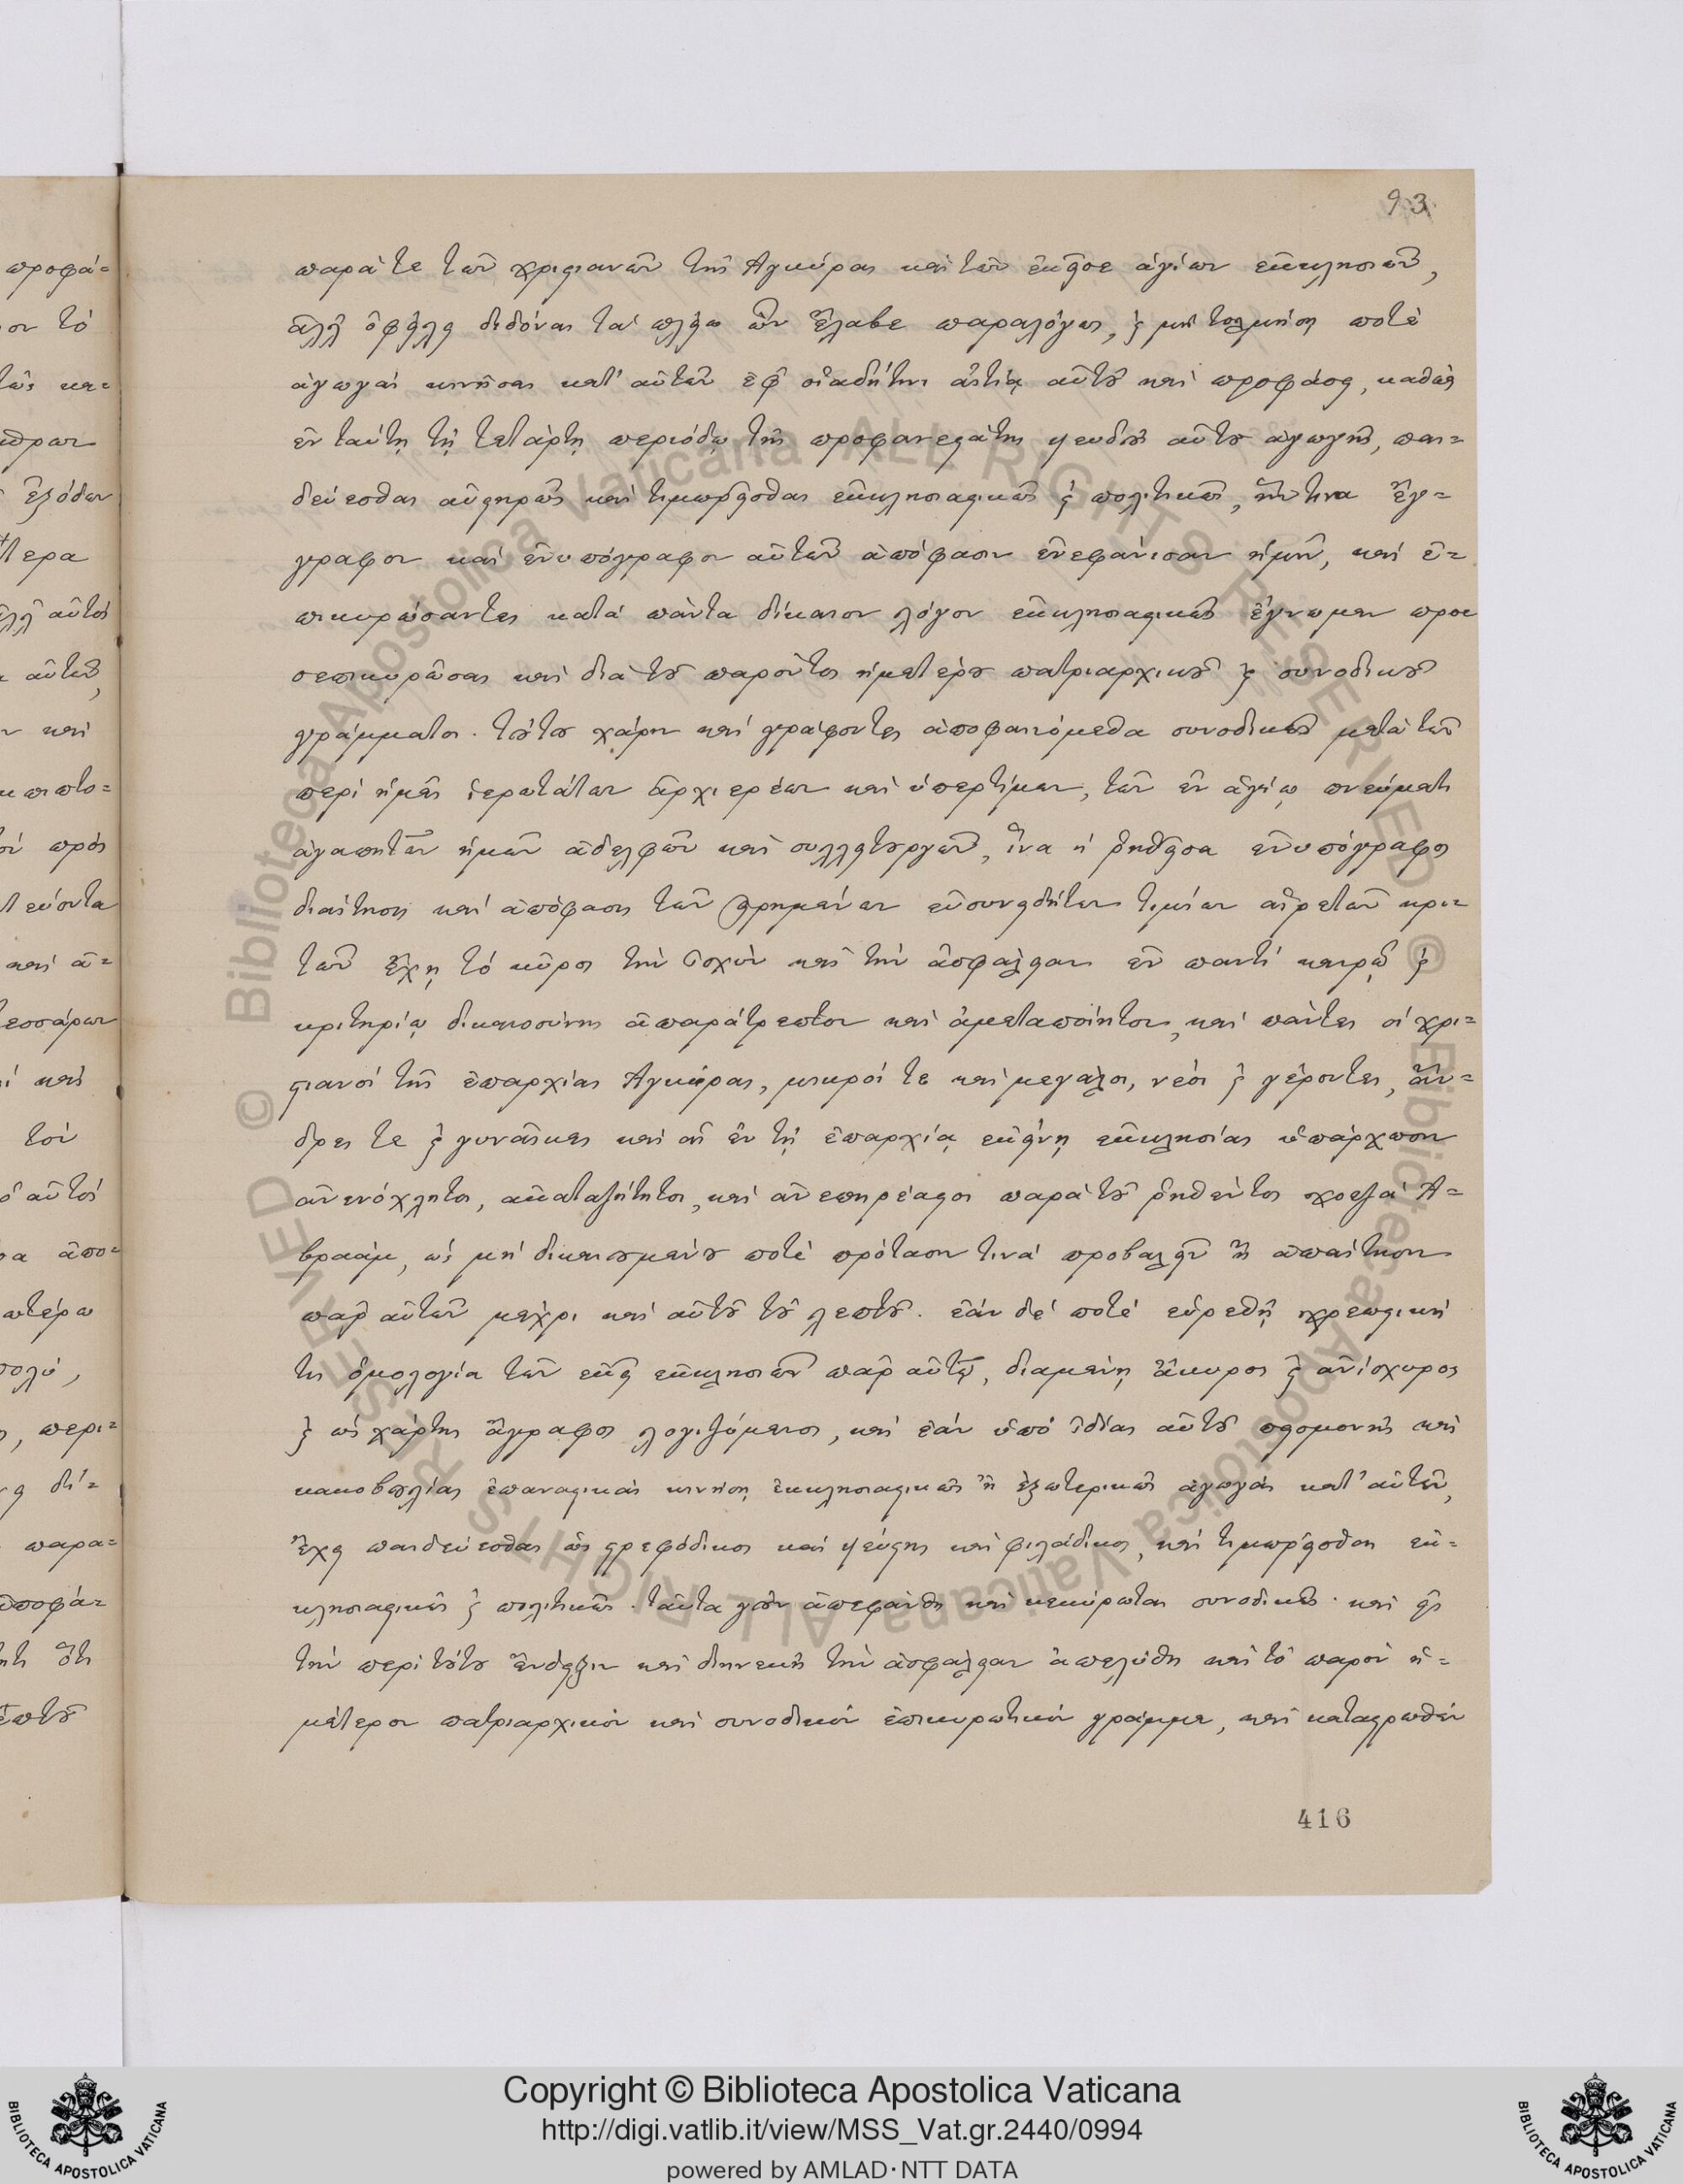 93
παρά τε τῶν χριστιανῶν τῆς Ἀγκύρας καὶ τῶν ἐκεῖσε ἁγίων ἐκκλησιῶν,
ἀλλ' ὀφείλει διδόναι τὰ πλείω ὧν ἔλαβε παραλόγως, καὶ μὴ τολμήσῃ ποτὲ
ἀγωγὰς κινῆσαι κατ' αὐτῶν ἐφ' οἱαδήτινι αἰτίᾳ αὐτοῦ καὶ προφάσει, καθὼς
ἐν ταύτῃ τῇ τετάρτῃ περιόδῳ τῆς προφανεστάτης ψευδοῦς αὐτοῦ ἀγωγῆς, παι=
δεύεσθαι αὐστηρῶς καὶ τιμωρεῖσθαι ἐκκλησιαστικῶς καὶ πολιτικῶς, ἥντινα ἔγ=
γραφον καὶ ἐνυπόγραφον αὐτῶν ἀπόφασιν ἐνεφάνισαν ἡμῖν, καὶ ἐ=
πικυρώσαντες κατὰ πάντα δίκαιον λόγον ἐκκλησιαστικῶς ἔγνωμεν προσ
σεπικυρῶσαι καὶ διὰ τοῦ παρόντος ἡμετέρου πατριαρχικοῦ καὶ συνοδικοῦ
γράμματος. τούτου χάριν καὶ γράφοντες ἀποφαινόμεθα συνοδικῶς μετὰ τῶν
περὶ ἡμᾶς ἱερωτάτων ἀρχιερέων καὶ ὑπερτίμων, τῶν ἐν ἁγίῳ πνεύματι
ἀγαπητῶν ἡμῶν ἀδελφῶν καὶ συλλειτουργῶν, ἵνα ἡ ῥηθεῖσα ἐνυπόγραφος
διαίτησις καὶ ἀπόφασις τῶν εἰρημένων εὐσυνειδήτων τιμίων αἱρετῶν κρι=
τῶν ἔχῃ τὸ κῦρος τὴν ἰσχὺν καὶ τὴν ἀσφάλειαν ἐν παντὶ καιρῷ καὶ
κριτηρίῳ δικαιοσύνης ἀπαράτρεπτον καὶ ἀμεταποίητον, καὶ πάντες οἱ χρι=
στιανοὶ τῆς ἐπαρχίας Ἀγκύρας, μικροί τε καὶ μεγάλοι, νέοι καὶ γέροντες, ἄν=
δρες τε καὶ γυναῖκες καὶ αἱ ἐν τῇ ἐπαρχίᾳ ἐκείνῃ ἐκκλησίαι ὑπάρχωσιν
ἀνενόχλητοι, ἀκαταζήτητοι, καὶ ἀνεπηρέαστοι παρὰ τοῦ ῥηθέντος χοεζᾶ Ἀ=
βραάμ, ὡς μὴ δικαιουμένου ποτὲ πρότασιν τινὰ προβαλεῖν ἢ ἀπαίτησιν
παρ' αὐτῶν μέχρι καὶ αὐτοῦ τοῦ λεπτοῦ. ἐὰν δέ ποτε εὑρεθῇ χρεωστική
τις ὁμολογία τῶν ἐκεῖ ἐκκλησιῶν παρ' αὐτῷ, διαμένῃ ἄκυρος καὶ ἀνίσχυρος
καὶ ὡς χάρτης ἄγραφος λογιζόμενος, καὶ ἐὰν ὑπὸ ἰδίας αὐτοῦ πεισμονῆς καὶ
κακοβουλίας ἐπαναστικὰς κινήσῃ ἐκκλησιαστικῶς ἢ ἐξωτερικῶς ἀγωγὰς κατ' αὐτῶν,
ἔχει παιδεύεσθαι ὡς στρεφόδικος καὶ ψεύστης καὶ φιλάδικος, καὶ τιμωρεῖσθαι ἐκ=
κλησιαστικῶς καὶ πολιτικῶς. ταῦτα γοῦν ἀπεφάνθη καὶ κεκύρωται συνοδικῶς. καὶ εἰς
τὴν περὶ τούτου ἔνδειξιν καὶ διηνεκῆ τὴν ἀσφάλειαν ἀπελύθη καὶ τὸ παρὸν ἡ=
μέτερον πατριαρχικὸν καὶ συνοδικὸν ἐπικυρωτικὸν γράμμα, καὶ καταστρωθὲν
416
Copyright © Biblioteca Apostolica Vaticana
http://digi.vatlib.it/view/MSS_Vat.gr.2440/0994
powered by AMLAD·NTT DATA